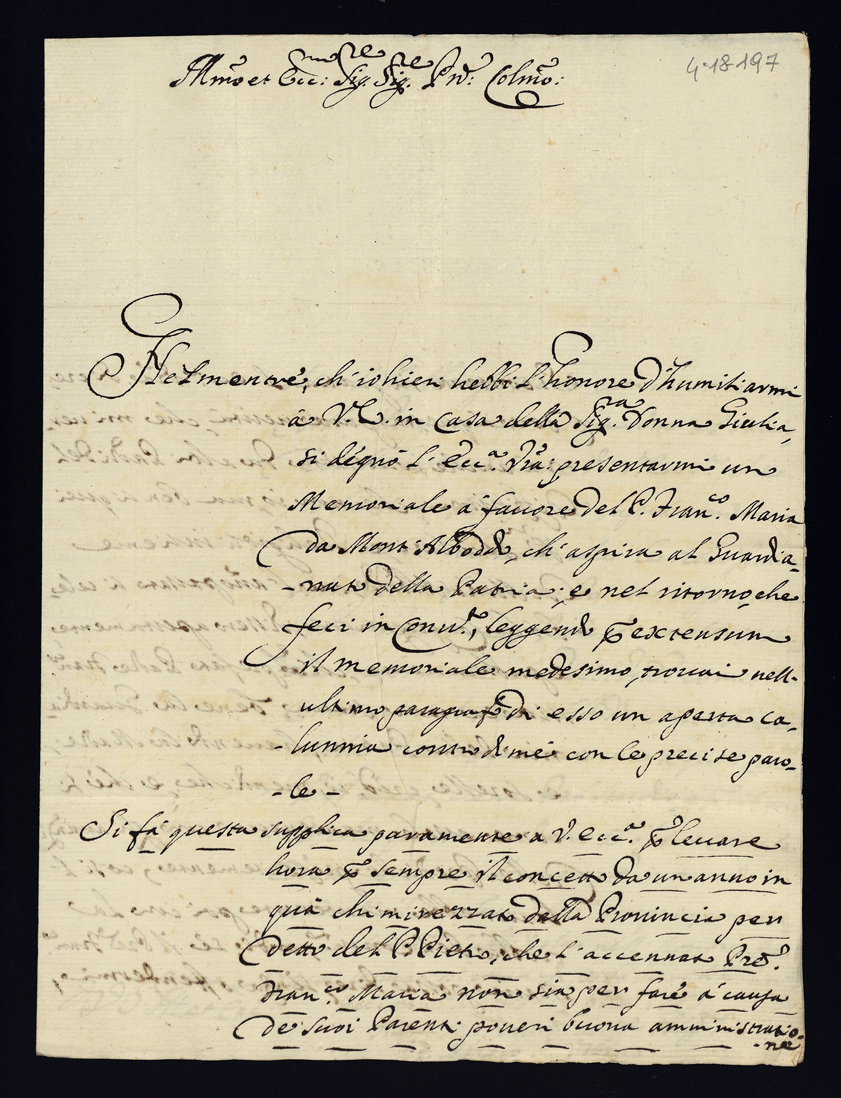 Illmo et Ecc:mo Sig.re Sig.re Prõ: Colmo:
4·18·197
Nel mentre, ch'io hieri hebbi l'honore d'humiliarmi
à V. E. in Casa della Sig.ra Donna Giulia,
si degnò l'Ecc.a Vrã: presentarmi un
Memoriale à fauore del P. Fran.co Maria
da Mont'Albodd, ch'aspira al Guardia-
-nato della Patria; e nel ritorno, che
feci in Conu.to, leggendo p extensum
il memoriale medesimo, trouai nell-
ultimo paragrafo di esso un aperta ca-
-lunnia contro di mè con le precise paro-
-le-
Si fà questa supplica puramente a V. Ecc.a p leuare
hora p sempre il concetto da un anno in
quà chimirezzato della Prouincia per
detto del P. Pietro, che l'accennato Prẽ.
Fran.co Maria non sia per fare à causa
de suoi Parenti poueri buona amministratio-
-ne